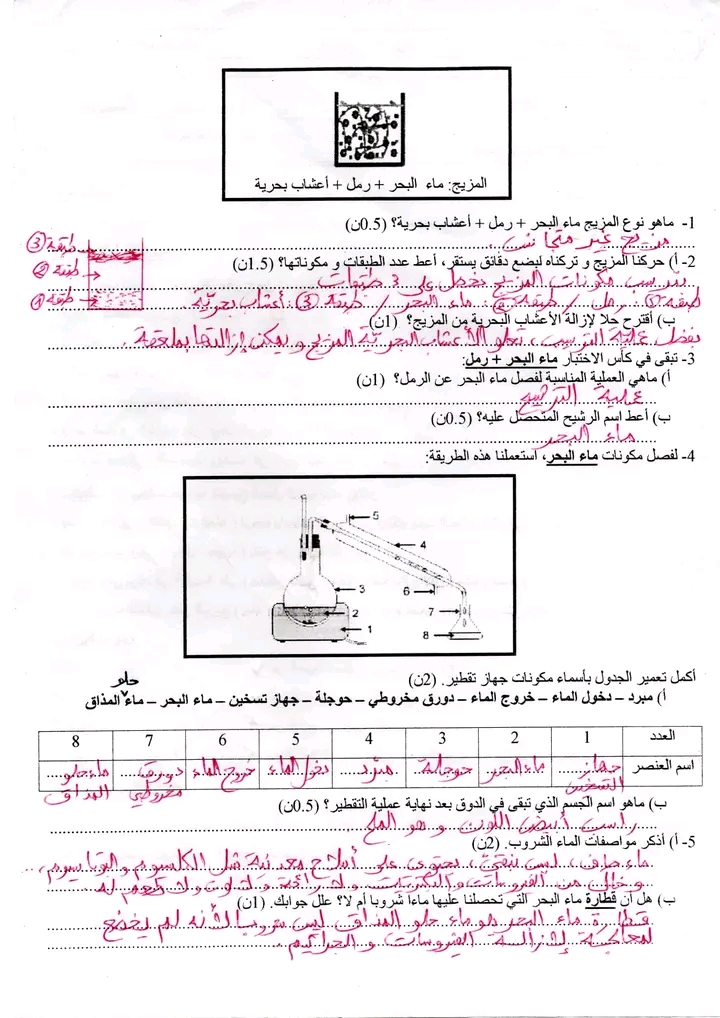 المزيج: ماء البحر + رمل + أعشاب بحرية
1- ماهو نوع المزيج ماء البحر + رمل + أعشاب بحرية؟ (0.5ن)
مزيج غير متجانس.
2- أ) حركنا المزيج و تركناه لبضع دقائق يستقر، أعط عدد الطبقات و مكوناتها؟ (1.5ن)
طبقة 3
طبقة 2
طبقة 1
بترسب مكونات المزيج نحصل على 3 طبقات
طبقة 1: رمل / طبقة 2: ماء البحر / طبقة 3: أعشاب بحريّة
ب) أقترح حلا لإزالة الأعشاب البحرية من المزيج؟ (1ن)
بفضل عملية الترسب، تعلو الأعشاب البحريّة المزيج و يمكن إزالتها بملعقة.
3- تبقى في كأس الاختبار ماء البحر + رمل:
أ) ماهي العملية المناسبة لفصل ماء البحر عن الرمل؟ (1ن)
عملية الترشيح
ب) أعط اسم الرشيح المتحصل عليه؟ (0.5ن)
ماء البحر
4- لفصل مكونات ماء البحر، استعملنا هذه الطريقة:
5
4
3
6
2
7
1
8
أكمل تعمير الجدول بأسماء مكونات جهاز تقطير. (2ن)
حلو
أ) مبرد – دخول الماء – خروج الماء – دورق مخروطي – حوجلة – جهاز تسخين – ماء البحر – ماء المذاق
العدد 1 2 3 4 5 6 7 8
اسم العنصر جهاز التسخين ماء البحر حوجلة مبرد دخول الماء خروج الماء دورق مخروطي ماء حلو المذاق
ب) ماهو اسم الجسم الذي تبقى في الدوق بعد نهاية عملية التقطير؟ (0.5ن)
راسب أبيض اللون و هو الملح
5- أ) أذكر مواصفات الماء الشروب. (2ن)
ماء صاف، ليس بنقيّ، يحتوي على أملاح معدنية مثل الكلسيوم و البوتاسيوم،
و خالي من الفيروسات و البكتيريات و لا رائحة و لا لون و لا طعم له
ب) هل أن قطارة ماء البحر التي تحصلنا عليها ماءا شروبا أم لا؟ علل جوابك. (1ن)
قطارة ماء البحر هو ماء حلو المذاق ليس شروبا لأنه لم يخضع
لمعالجة لإزالة الفيروسات و الجراثيم.